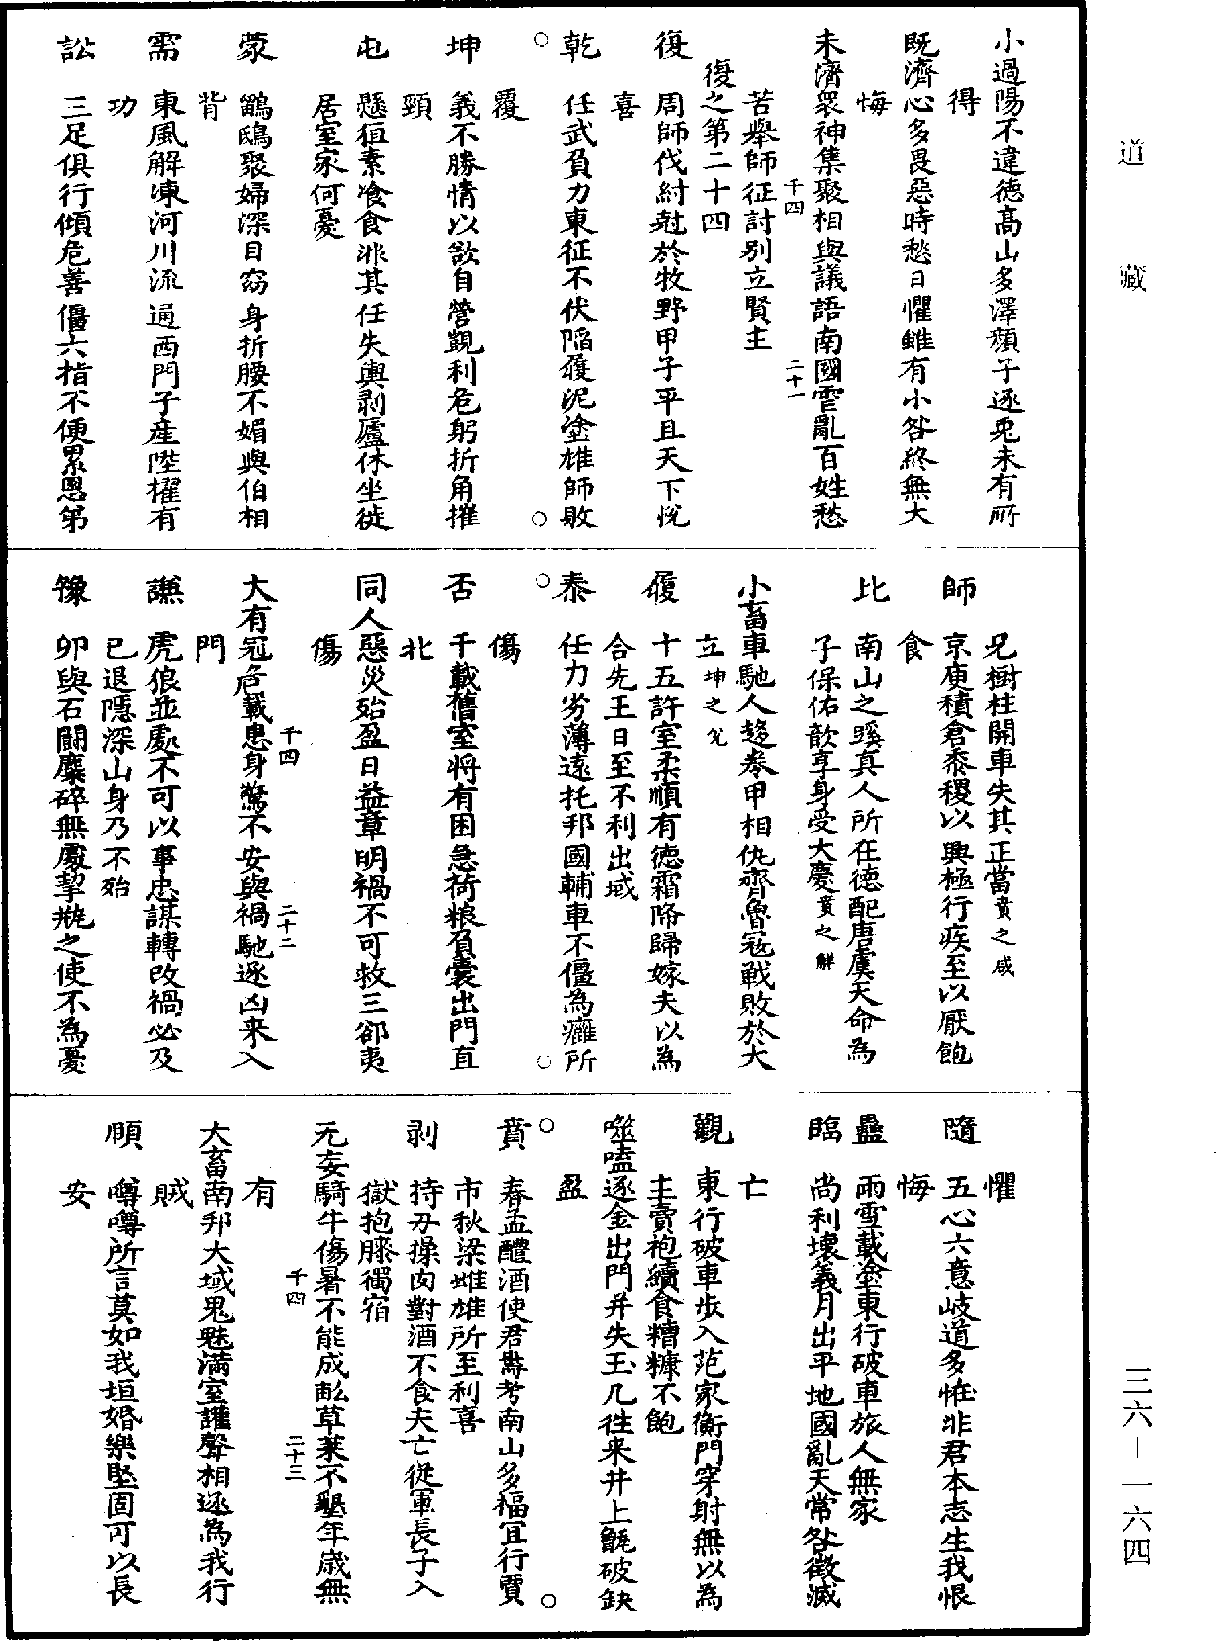 道藏
小過陽不違德高山多澤顏子逐兎未有所
得
既濟心多畏惡時愁日懼雖有小咎終無大
悔
未濟眾神集聚相與議語南國雪亂百姓愁
千四 二十一
苦舉師征討別立賢主
復之第二十四
復 周師伐紂尅於牧野甲子平旦天下悅
喜
乾 任武負力東征不伏陷履泥塗雄師敗
覆
坤 義不勝情以欲自營覬利危躬折角摧
頸
屯 懸狟素飡食非其任失輿剥廬休坐徙
居室家何憂
蒙 鶻鴟聚婦深目窈身折腰不媚與伯相
背
需 東風解凍河川流通西門子産陞擢有
功
訟 三足俱行傾危善僵六指不便累恩弟
兄樹柱開車失其正當賁之咸
師 京庾積倉黍稷以興極行疾至以厭飽
食
比 南山之蹊真人所在德配唐虞天命為
子保佑歆享身受大慶賁之解
小畜車馳人趍卷甲相仇齊魯寇戰敗於大
立坤之兌
履 十五許室柔順有德霜降歸嫁夫以為
合先王日至不利出域
泰 任力劣薄遠托邦國輔車不僵為癰所
傷
否 千載舊室將有困急荷粮負囊出門直
北
同人惡災殆盈日益章明禍不可救三郤夷
傷
千四 二十二
大有冠危戴患身驚不安與禍馳逐凶来入
門
謙 虎狼並處不可以事忠謀轉改禍必及
已退隱深山身乃不殆
豫 卯與石鬭麋碎無處挈瓶之使不為憂
懼
隨 五心六意岐道多恠非君本志生我恨
悔
蠱 雨雪載塗東行破車旅人無家
臨 尚利壞義月出平地國亂天常咎徵滅
亡
觀 東行破車步入范家衡門穿射無以為
主賣袍續食糟糠不飽
噬嗑逐金出門并失玉几徃来井上甂破缺
盈
賁 春孟醴酒使君壽考南山多福宜行賈
市秋梁雌雄所至利喜
剥 持刃操肉對酒不食夫亡從軍長子入
獄抱膝獨宿
无妄騎牛傷暑不能成畆草萊不墾年歲無
千四 二十三
有
大畜南邦大域鬼魅滿室讙聲相逐為我行
賊
頤 噂噂所言莫如我垣婚樂堅固可以長
安
三六—一六四